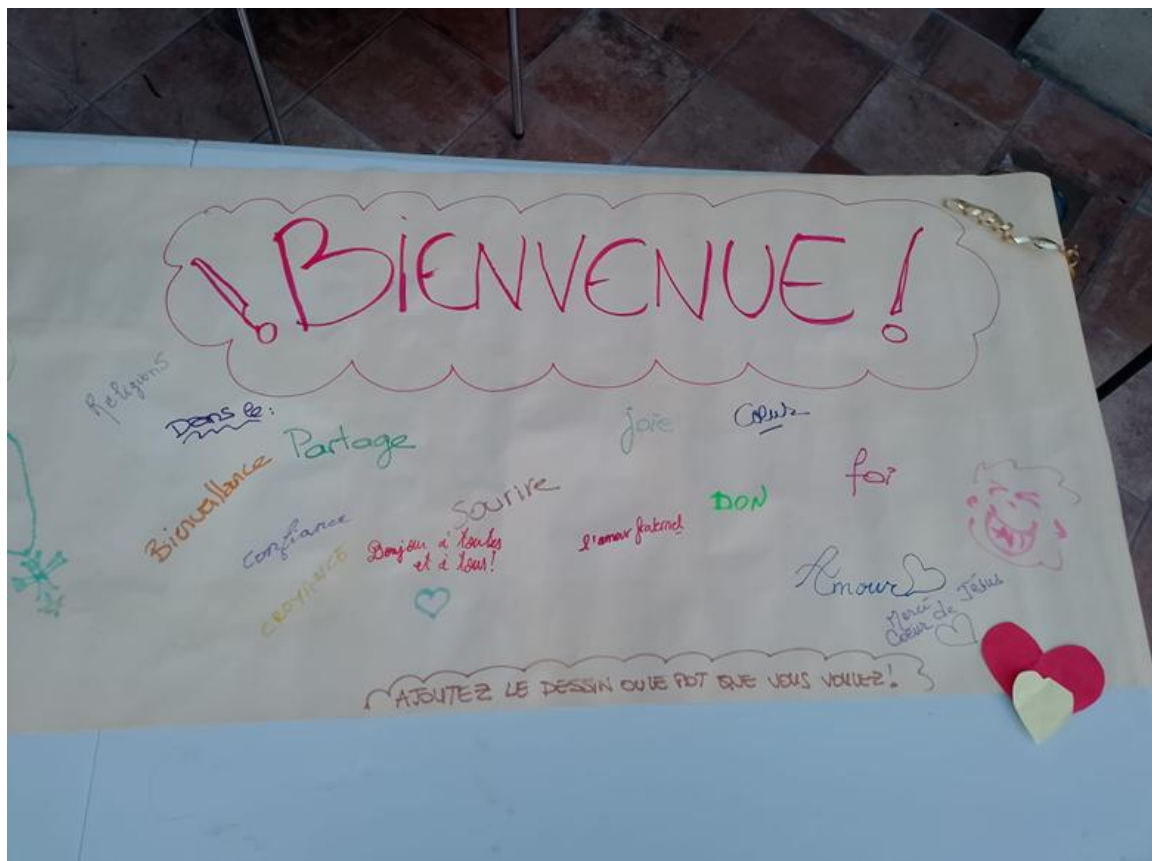 ¡BIENVENUE!
Religions
Dans le:
Partage
joie
Cœur
Bienveillance
Sourire
DON
foi
Confiance
Bonjour à toutes
et à tous!
l'amour fraternel
CROYANCE
Amour
Merci
Coeur de Jésus
AJOUTEZ LE DESSIN OU LE MOT QUE VOUS VOULEZ!